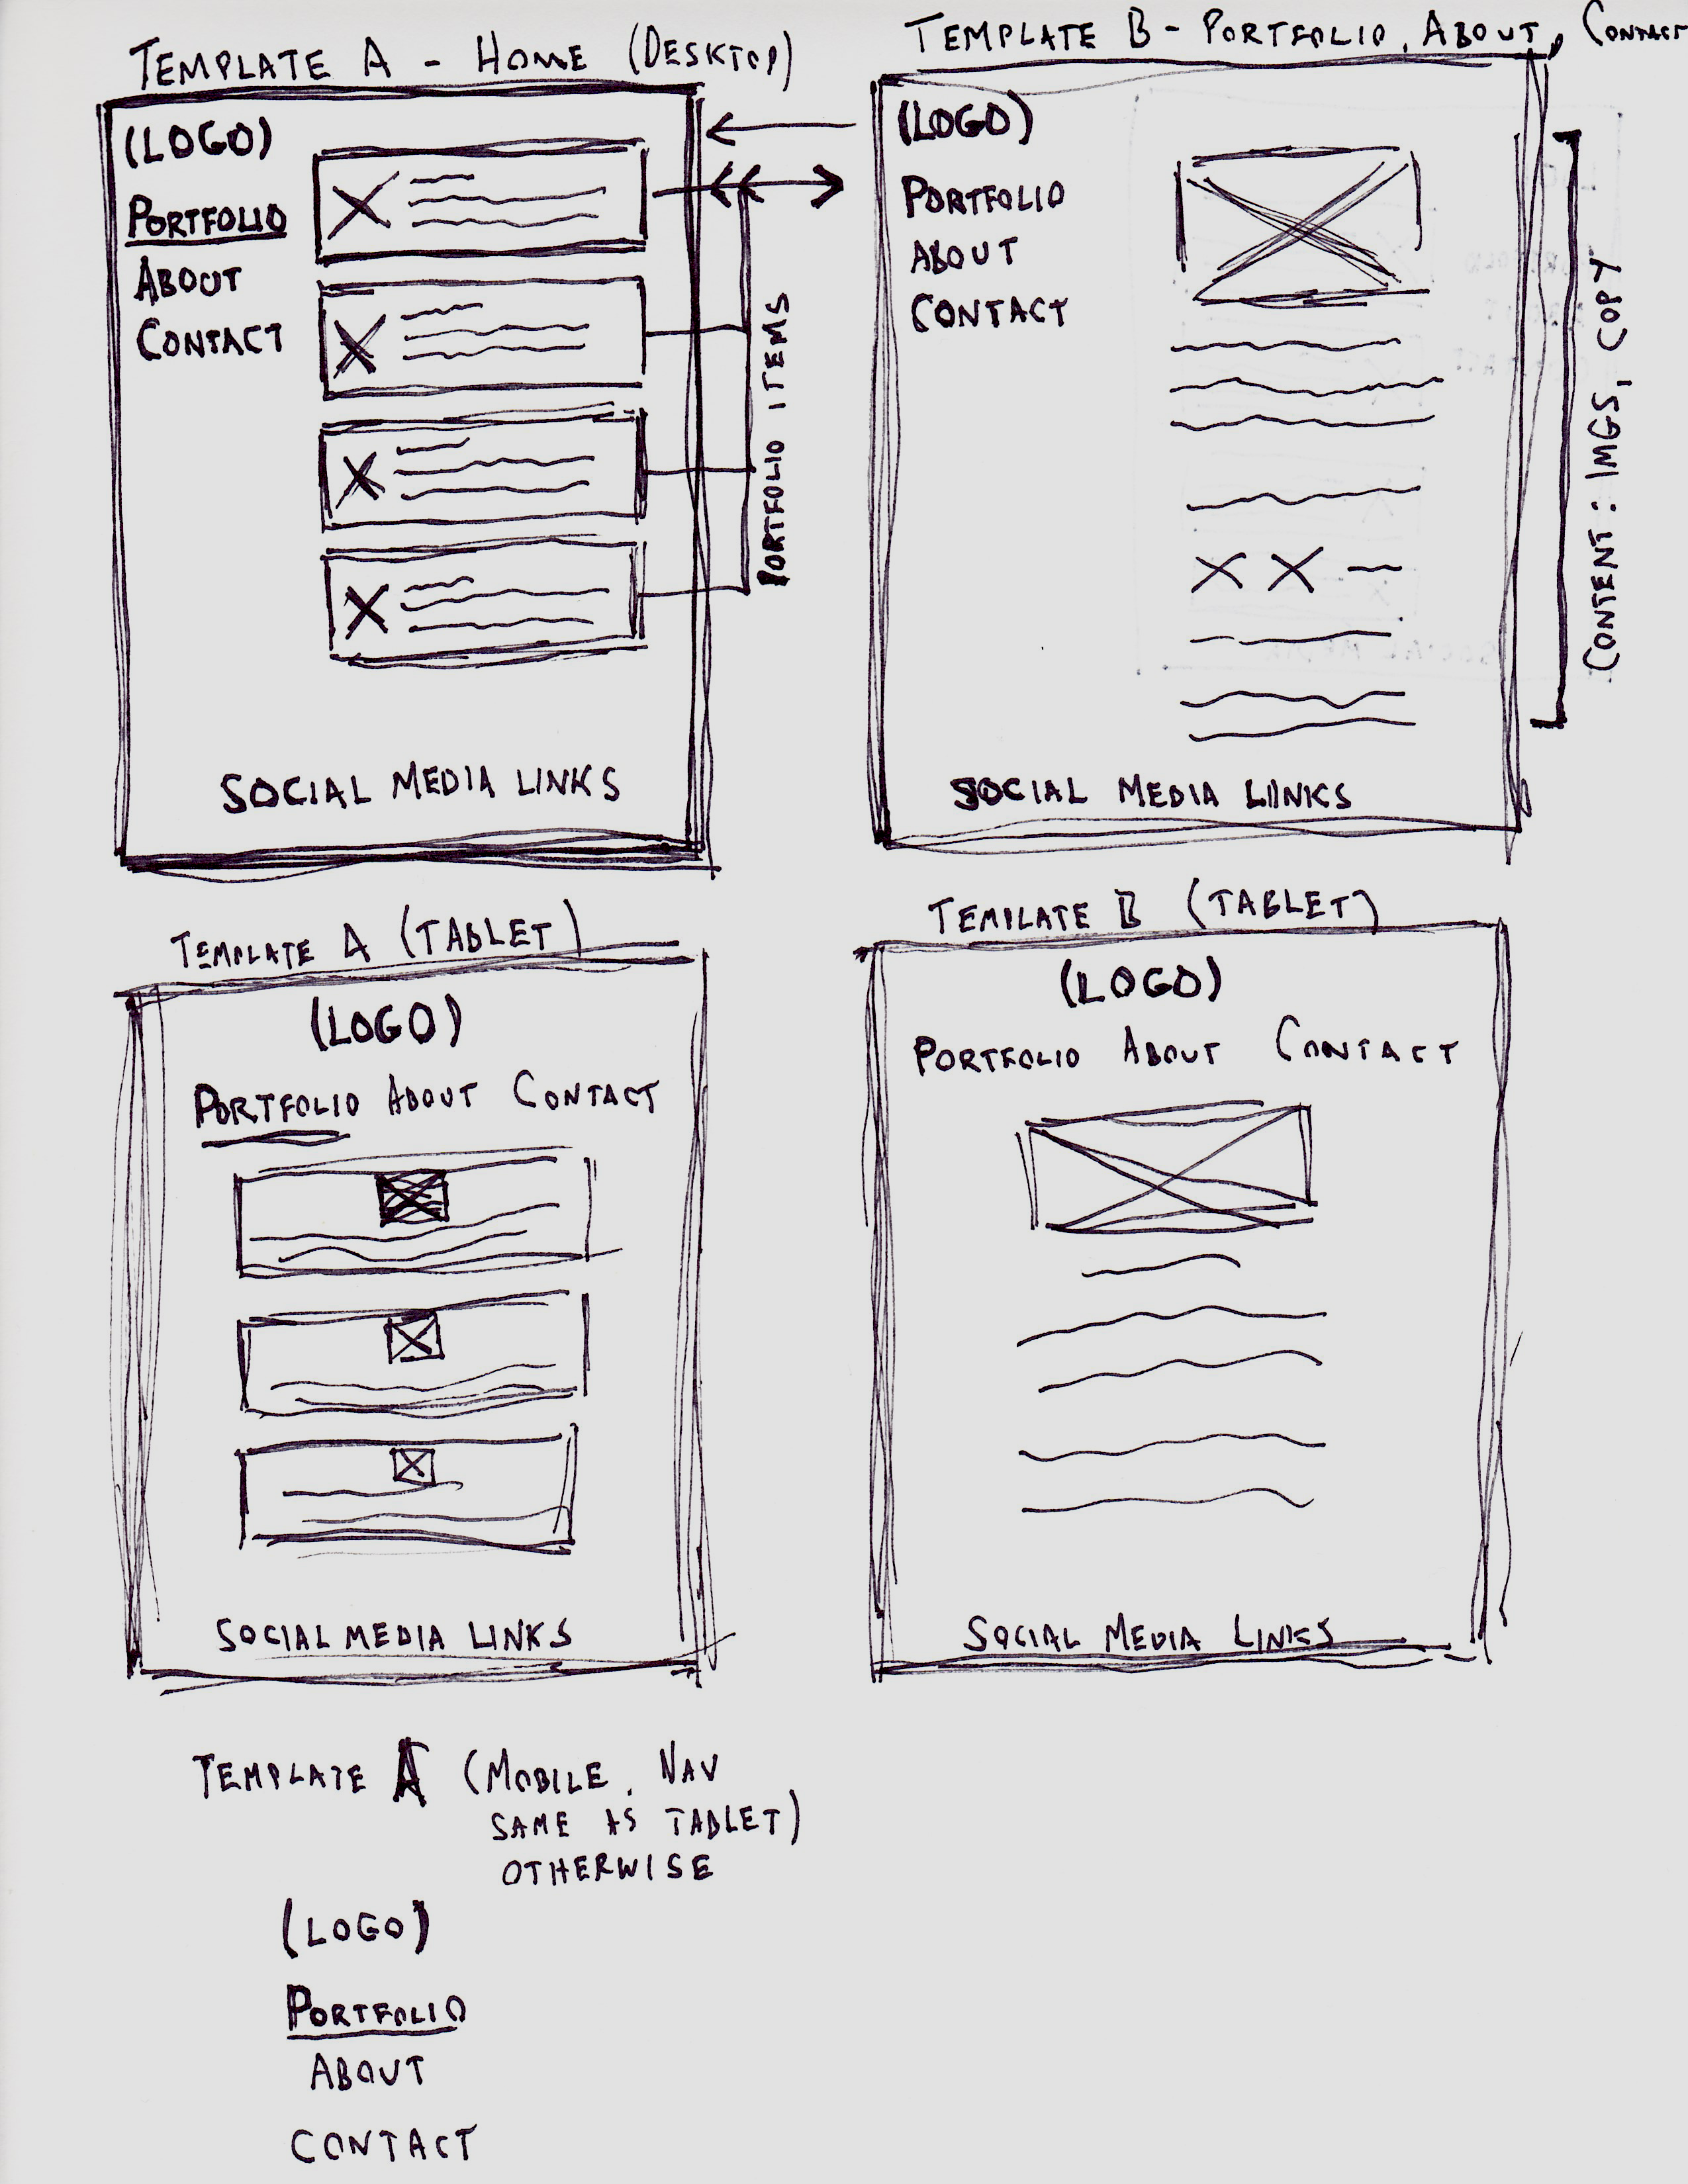 TEMPLATE A - HOME (DESKTOP)
(LOGO)
PORTFOLIO
ABOUT
CONTACT
PORTFOLIO ITEMS
SOCIAL MEDIA LINKS
TEMPLATE B - PORTFOLIO, ABOUT, CONTACT
(LOGO)
PORTFOLIO
ABOUT
CONTACT
CONTENT: IMGS, COPY
SOCIAL MEDIA LINKS
TEMPLATE A (TABLET)
(LOGO)
PORTFOLIO ABOUT CONTACT
SOCIAL MEDIA LINKS
TEMPLATE B (TABLET)
(LOGO)
PORTFOLIO ABOUT CONTACT
SOCIAL MEDIA LINKS
TEMPLATE A (MOBILE, NAV
SAME AS TABLET)
OTHERWISE
(LOGO)
PORTFOLIO
ABOUT
CONTACT